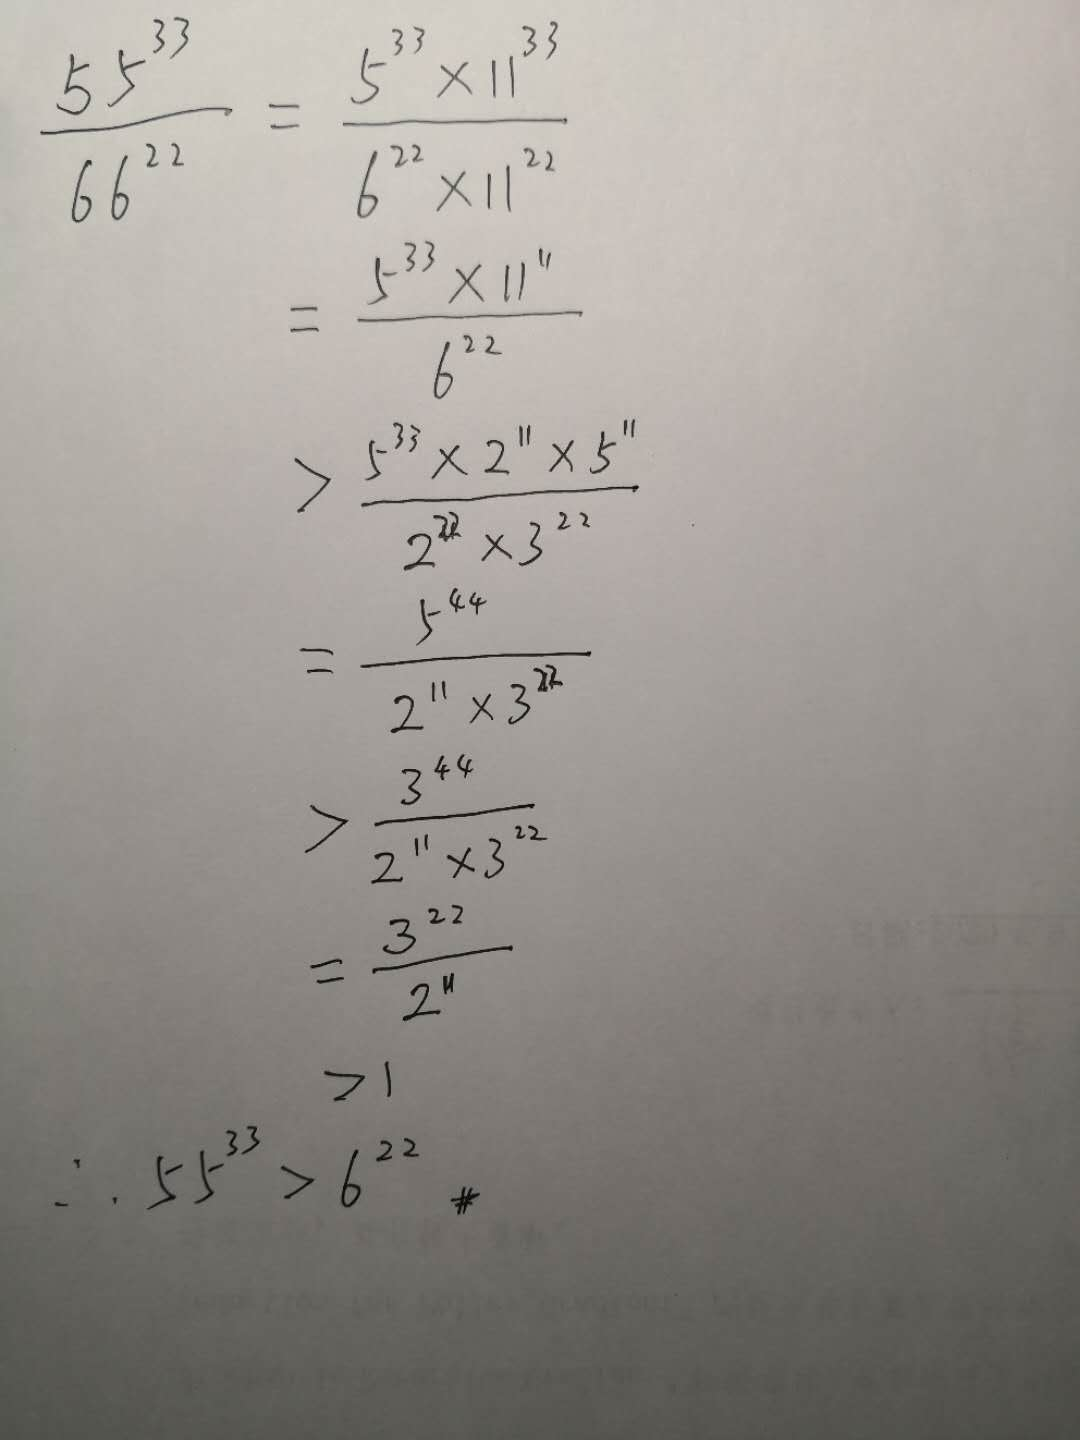 55^33 / 66^22 = 5^33 × 11^33 / 6^22 × 11^22
= 5^33 × 11^11 / 6^22
> 5^33 × 2^11 × 5^11 / 2^22 × 3^22
= 5^44 / 2^11 × 3^22
> 3^44 / 2^11 × 3^22
= 3^22 / 2^11
> 1
∴ 55^33 > 6^22 #